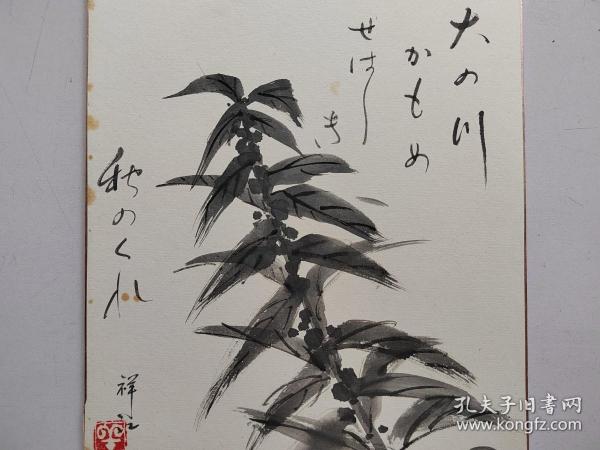 大の川
かもめ
せはし
き
秋のくれ
祥江
孔夫子旧书网
www.kongfz.com